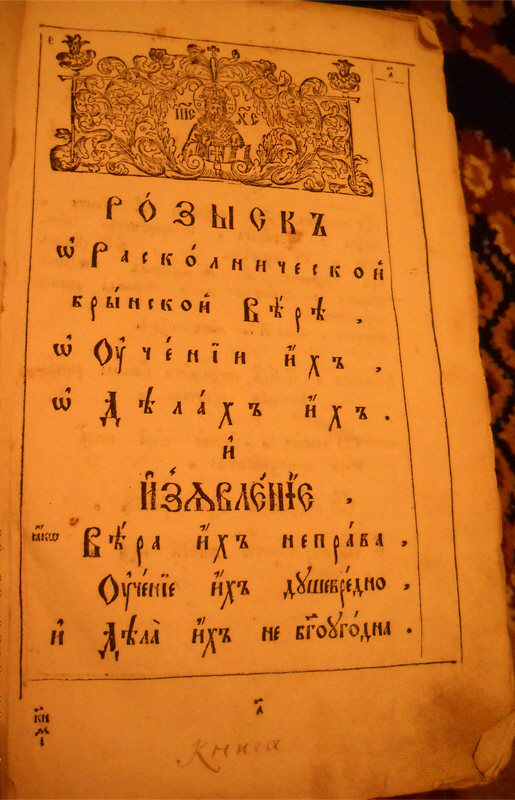 І҆И҃С Х҃С
РО́ЗЫСКЪ
ѡ҆ Раско́лнической
бры́нской Вѣ́рѣ ,
ѡ҆ Оу҆че́нїи и҆́хъ ,
ѡ҆ Дѣла́хъ и҆́хъ .
и҆
И҆З̾ѦВЛЕ́НЇЕ ,
ꙗ҆́кѡ Вѣ́ра и҆́хъ непра́ва ,
Оу҆че́нїе и҆́хъ душевре́дно ,
и҆ Дѣла̀ и҆́хъ не бг҃оуго́дна .
а҃
Книга